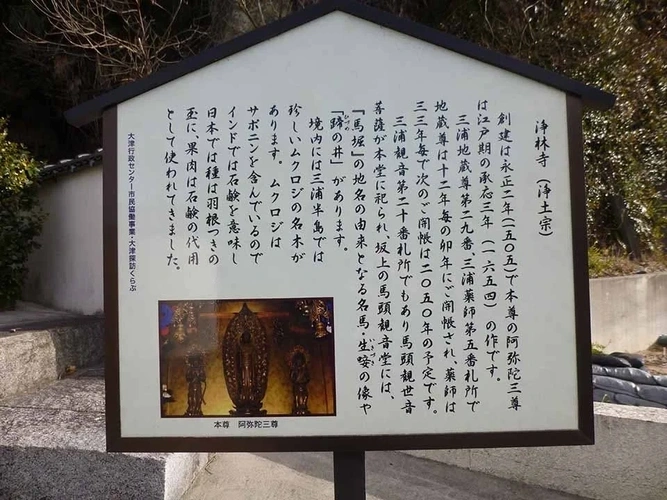 浄林寺（浄土宗）
創建は永正二年（一五〇五）で本尊の阿弥陀三尊
は江戸期の承応三年（一六五四）の作です。
三浦地蔵尊第二九番、三浦薬師第五番札所で
地蔵尊は十二年毎の卯年にご開帳され、薬師は
三三年毎で次のご開帳は二〇五〇年の予定です。
三浦観音第二十番札所でもあり馬頭観世音
菩薩が本堂に祀られ、坂上の馬頭観音堂には、
『馬堀』の地名の由来となる名馬・生唼の像や
「蹄の井」があります。
境内には三浦半島では
珍しいムクロジの名木が
あります。ムクロジは
サポニンを含んでいるので
インドでは石鹸を意味し
日本では種は羽根つきの
玉に、果肉は石鹸の代用
として使われてきました。
大津行政センター市民協働事業・大津探訪くらぶ
本尊　阿弥陀三尊